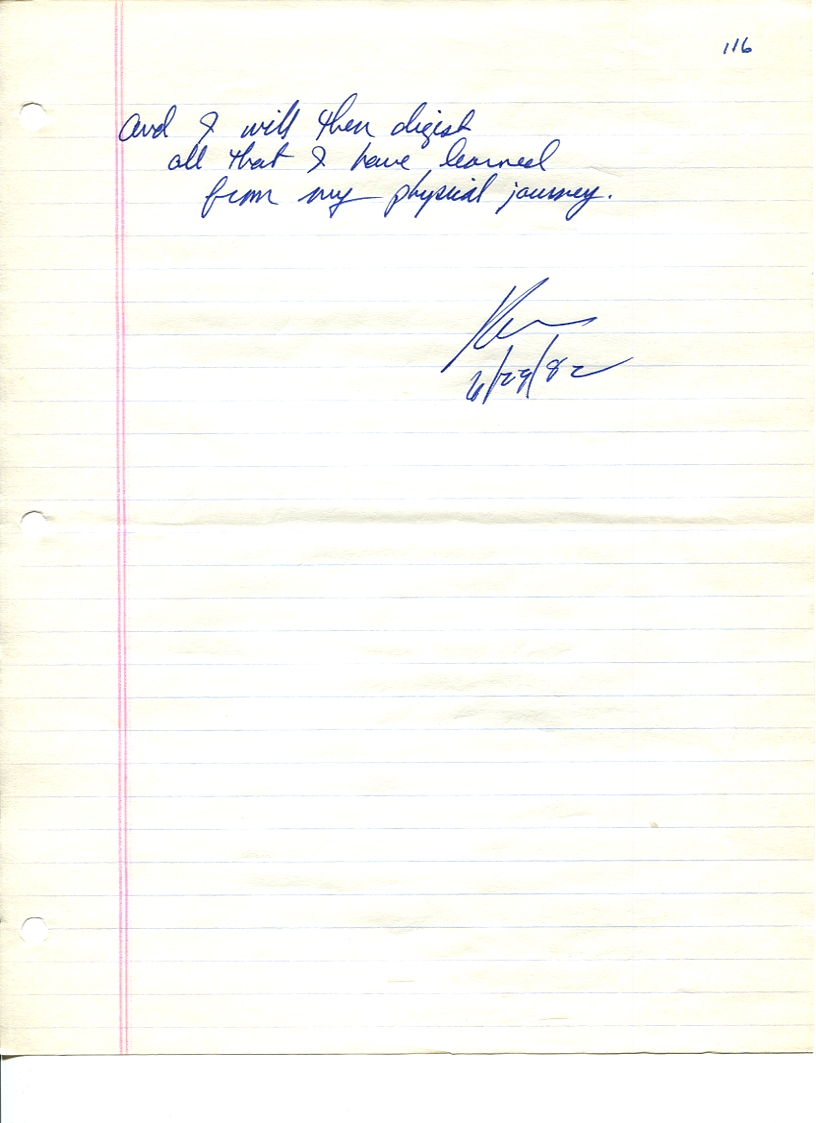 116
And I will then digest
all that I have learned
from my physical journey.
Ken
6/29/82